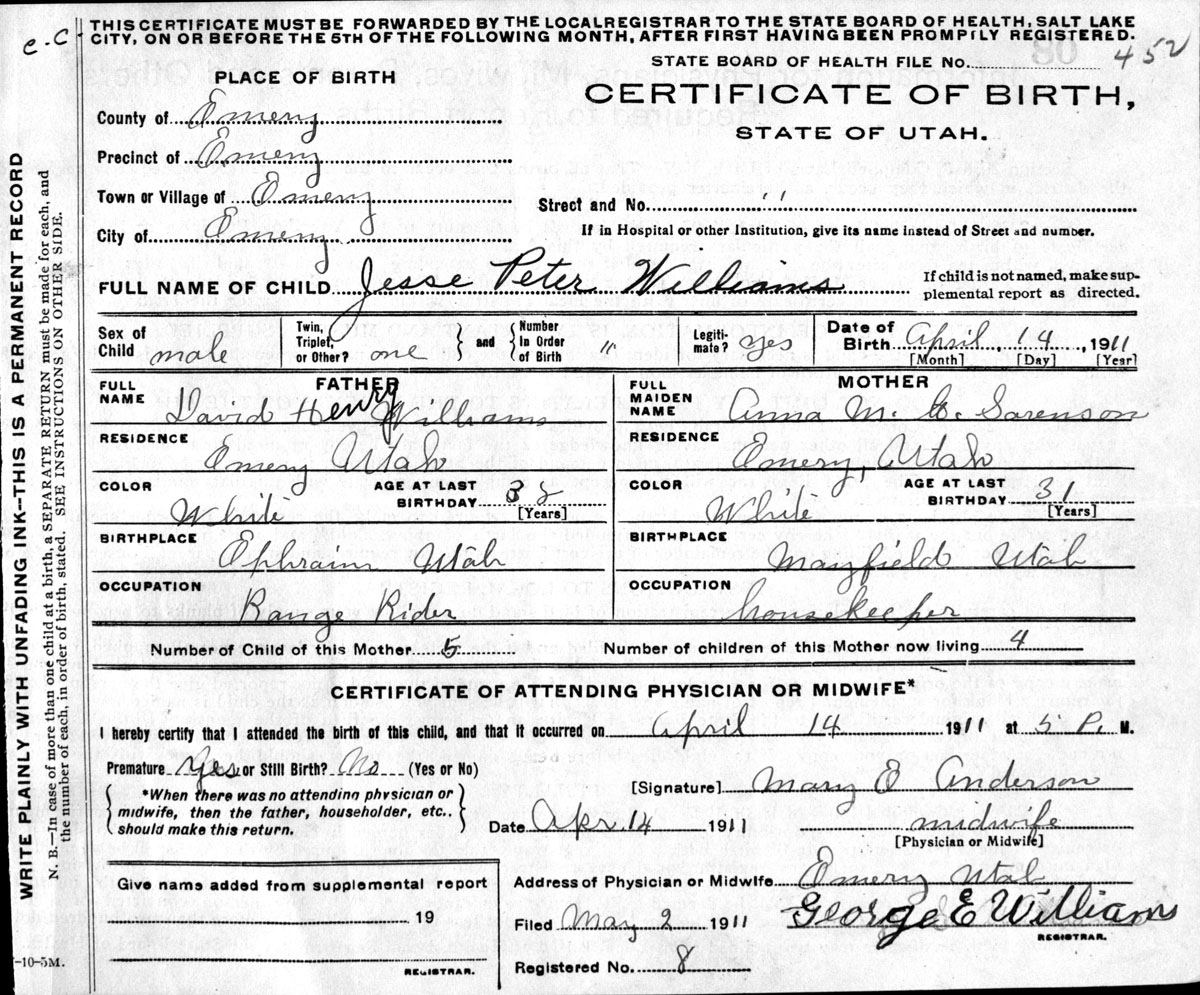 THIS CERTIFICATE MUST BE FORWARDED BY THE LOCAL REGISTRAR TO THE STATE BOARD OF HEALTH, SALT LAKE
CITY, ON OR BEFORE THE 5TH OF THE FOLLOWING MONTH, AFTER FIRST HAVING BEEN PROMPTLY REGISTERED.
C-C-
STATE BOARD OF HEALTH FILE No. 452
PLACE OF BIRTH
CERTIFICATE OF BIRTH,
STATE OF UTAH.
County of Emery
Precinct of Emery
Town or Village of Emery
Street and No. "
City of Emery
If in Hospital or other Institution, give its name instead of Street and number.
FULL NAME OF CHILD Jesse Peter Williams
If child is not named, make sup-
plemental report as directed.
Sex of Child male
Twin, Triplet, or Other? one
and Number In Order of Birth "
Legiti-mate? yes
Date of Birth April 14, 1911
[Month] [Day] [Year]
FATHER
FULL NAME David Henry Williams
RESIDENCE Emery Utah
COLOR White
AGE AT LAST BIRTHDAY 32 [Years]
BIRTHPLACE Ephraim Utah
OCCUPATION Range Rider
MOTHER
FULL MAIDEN NAME Anna M. Sorenson
RESIDENCE Emery, Utah
COLOR White
AGE AT LAST BIRTHDAY 31 [Years]
BIRTHPLACE Mayfield Utah
OCCUPATION housekeeper
Number of Child of this Mother 5
Number of children of this Mother now living 4
CERTIFICATE OF ATTENDING PHYSICIAN OR MIDWIFE*
I hereby certify that I attended the birth of this child, and that it occurred on April 14 1911 at 5 P. M.
Premature Yes or Still Birth? No (Yes or No)
*When there was no attending physician or
midwife, then the father, householder, etc.,
should make this return.
[Signature] Mary E Anderson
Date Apr. 14 1911
midwife
[Physician or Midwife]
Give name added from supplemental report
19
REGISTRAR.
Address of Physician or Midwife Emery Utah
Filed May 2 1911
George E Williams
REGISTRAR.
Registered No. 8
-10-5M.
WRITE PLAINLY WITH UNFADING INK—THIS IS A PERMANENT RECORD
N. B.—In case of more than one child at a birth, a SEPARATE RETURN must be made for each, and
the number of each, in order of birth, stated. SEE INSTRUCTIONS ON OTHER SIDE.